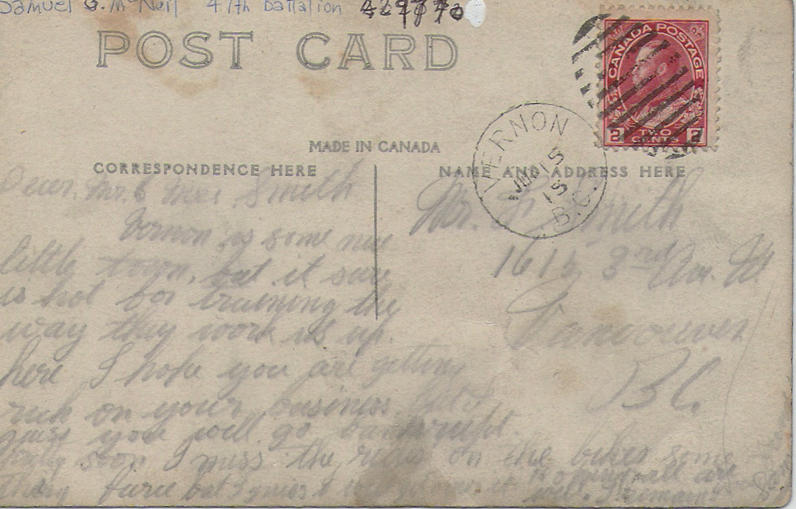 Samuel G. McNeil 47th Battalion
POST CARD
CANADA POSTAGE
2 TWO CENTS 2
VERNON
15
15
B.C.
MADE IN CANADA
CORRESPONDENCE HERE
NAME AND ADDRESS HERE
Dear Mr. & Mrs Smith
Vernon is some nice
little town, but it sure
is hot for training the
way they work us up
here I hope you are getting
rich on your business but I
guess you will go bankrupt
soon I miss the rides on the bikes some
thing fierce but I guess
all are
well. I remain
Mr. Smith
3rd Ave. W
Vancouver
B.C.